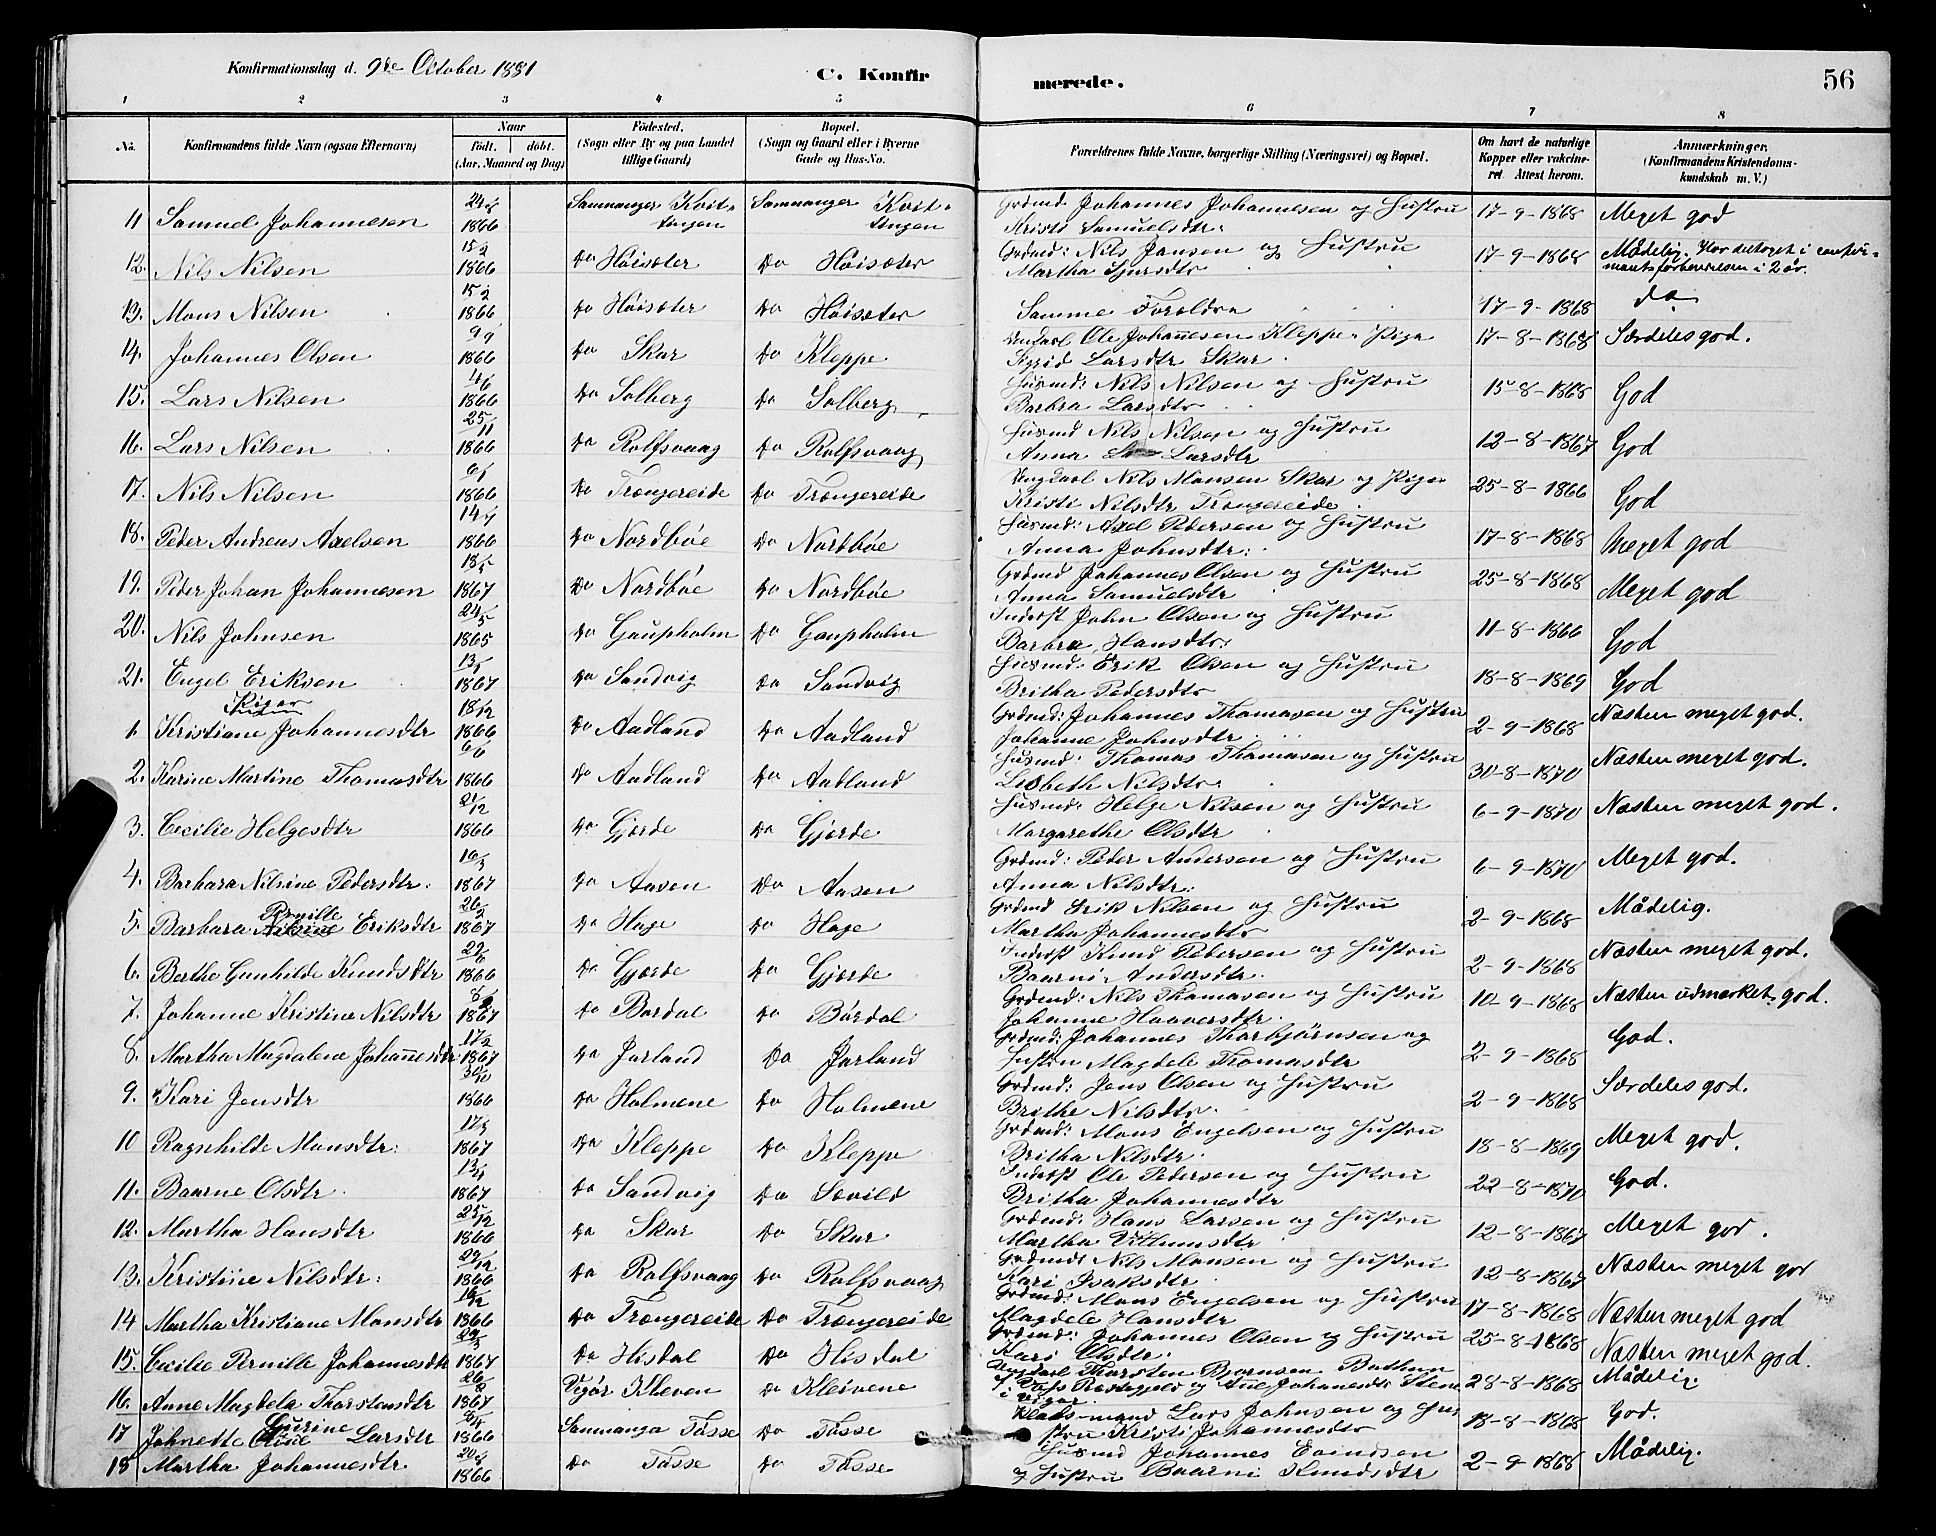 Konfirmationsdag d. 9de October 1881
C. Konfirmerede.
56
1 2 3 4 5 6 7 8
No. Konfirmandens fulde Navn (ogsaa Efternavn) Naar født. døbt. (Aar, Maaned og Dag) Fødested. (Sogn eller By og paa Landet tillige Gaard) Bopæl. (Sogn og Gaard eller i Byerne Gade og Hus-No. Forældrenes fulde Navne, borgerlige Stilling (Næringsvei) og Bopæl. Om havt de naturlige Kopper eller vakcineret. Attest herom. Anmærkninger. (Konfirmandens Kristendomskundskab m. V.)
11 Samuel Johannesen 1866 Samnanger Samnanger Grdmd Johannes Johannesen og Hustru Kristi Samuelsdtr: 17-9-1868 Meget god
12. Nils Nilsen 15/2 1866 Do Höisæter Do Höisæter Grdmd: Nils Jansen og Hustru Martha Sjursdtr 17-9-1868 Mådelig. Har deltaget i i 2 år.
13. Mons Nilsen 15/2 1866 Do Höisæter Do Höisæter Samme Forældre 17-9-1868 do
14. Johannes Olsen 9/9 1866 Do Skar Do Kleppe Ungkarl Ole Johannesen Kleppe. Pige Sigrid Larsdtr Skar. 17-8-1868 Særdeles god.
15. Lars Nilsen 4/6 1866 Do Solberg Do Solberg Husmd: Nils Nilsen og Hustru Barbra Larsdtr 15-8-1868 God
16. Lars Nilsen 25/11 1866 Do Rolfsvaag Do Rolfsvaag Husmd Nils Nilsen og Hustru Anna Larsdtr 12-8-1867 God
17. Nils Nilsen 1866 Do Trengereide Do Trengereide Ungkarl Nils Monsen Skar og Pige Kristi Nilsdtr Trengereide 25-8-1866 God
18. Peder Andreas Axelsen 1866 Do Nordböe Do Nordböe Husmd: Axel Pedersen og Hustru Anna Johnsdtr: 17-8-1868 Meget god
19. Peder Johan Johannesen 1867 Do Nordböe Do Nordböe Grdmd Johannes Olsen og Hustru Anna Samuelsdtr 25-8-1868 Meget god
20. Nils Johnsen 24/5 1865 Do Gaupholm Do Gaupholm Inderst John Olsen og Hustru Barbra Hansdtr: 11-8-1866 God
21. Engel Eriksen 1867 Do Sandvig Do Sandvig Husmd: Erik Olsen og Hustru Britha Pedersdtr 18-8-1869 God
Piger
1 Kristiane Johannesdtr 18/12 1866 Do Aadland Do Aadland Grdmd: Johannes Thomasen og Hustru Johanne Johnsdtr 2-9-1868 Næsten meget god.
2. Karine Martine Thomasdtr 1866 Do Aadland Do Aadland Husmd: Thomas Thomasen og Hustru Lisbeth Nilsdtr 30-8-1870 Næsten meget god.
3. Cecilie Helgesdtr 21/12 1866 Do Gjerde Do Gjerde Husmd: Helge Nilsen og Hustru Margarethe Olsdtr 6-9-1870 Næsten meget god.
4. Barbara Nilsine Pedersdtr. 16/3 1867 Do Aasen Do Aasen Grdmd: Peder Andersen og Hustru Anna Nilsdtr: 6-9-1870 Meget god.
5. Barbara Pernille Eriksdtr 26/2 1867 Do Hage Do Hage Grdmd Erik Nilsen og Hustru Martha Johannesdtr 2-9-1868 Mådelig.
6. Berthe Gunhilde Knudsdtr 1866 Do Gjerde Do Gjerde Inderst Knud Pedersen og Hustru Baarni Andersdtr. 2-9-1868 Næsten meget god.
7. Johanne Kristine Nilsdtr 1867 Do Bordal Do Bördal Grdmd: Nils Thomasen og Hustru Johanne Haaversdtr. 10-9-1868 Næsten udmærket god.
8. Martha Magdalene Johañesdtr 17/2 1867 Do Jarland Do Jarland Grdmd: Johannes Thorbjörnsen og Hustru Magdele Thomasdtr 2-9-1868 God.
9. Kari Jensdtr 1866 Do Holmene Do Holmene Grdmd: Jens Olsen og Hustru Brithe Nilsdtr. 2-9-1868 Særdeles god.
10 Ragnhilde Monsdtr: 17/3 1867 Do Kleppe Do Kleppe Grdmd: Mons Engelsen og Hustru Britha Nilsdtr. 18-8-1869 Meget god.
11. Baarne Olsdtr 1867 Do Sandvig Do Sævild Inderst Ole Pedersen og Hustru Britha Johannesdtr 22-8-1870 God.
12. Martha Hansdtr 25/12 1866 Do Skar Do Skar Grdmd: Hans Larsen og Hustru Martha 12-8-1867 Meget god.
13. Kristine Nilsdtr: 29/12 1866 Do Rolfsvaag Do Rolfsvaag Grdmd: Nils Monsen og Hustru Kari Isaksdtr 12-8-1867 Næsten meget god
14 Martha Kristiane Monsdtr 16/12 1866 Do Trengereide Do Trengereide Grdmd: Mons Engelsen og Hustru Magdele Hansdtr 17-8-1868 Næsten meget god
15. Cecilie Pernille Johannesdtr 29/3 1867 Do Hisdal Do Hisdal Grdmd: Johannes Olsen og Hustru Kari Olsdtr. 25-8-1868 Næsten meget god.
16. Anne Magdela Thorstensdtr 1867 Vigör Kleven Do Kleivene Ungkarl Thorsten Bjornsen 28-8-1868 Mådelig.
17 Johnette Larsdtr 1866 Samnanger Tösse Do Tösse Lars Johnsen og Hustru Kristi Johannesdtr 18-8-1868 God.
18 Martha Johannesdtr. 1866 Do Tösse Do Tösse Husmd Johannes Eoindsen og Hustru Baarni Knudsdtr 2-9-1868 Mådelig.